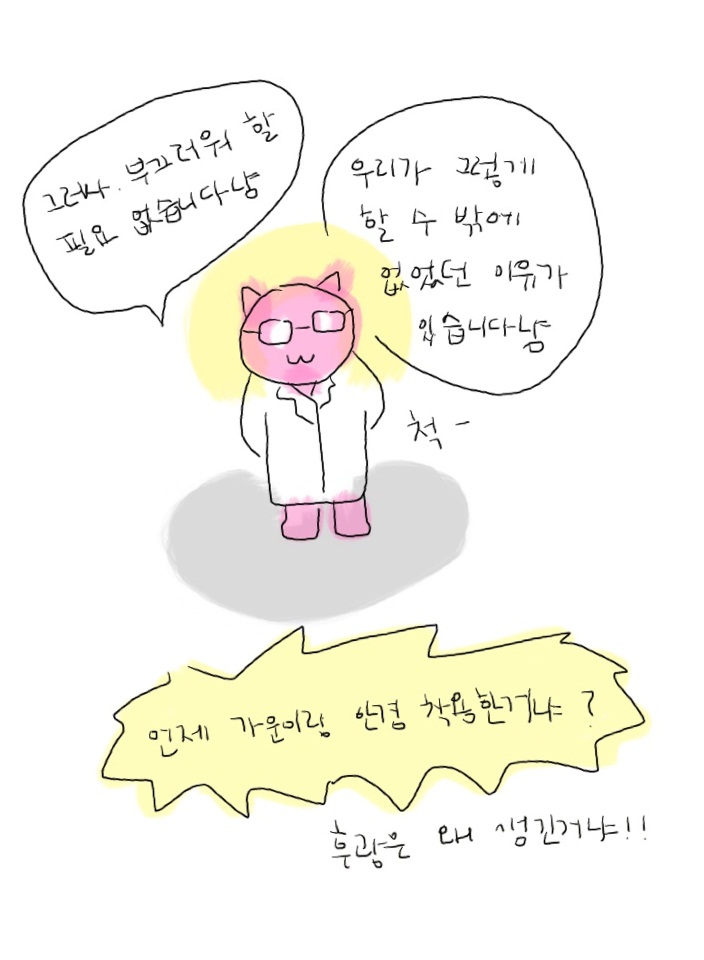 부끄러워 할
필요 없습니다냥
우리가 그렇게
할 수 밖에
없었던 이유가
있습니다냥
척-
언제 가운이랑 안경 착용한거냐?
후광은 왜 생긴거냐!!